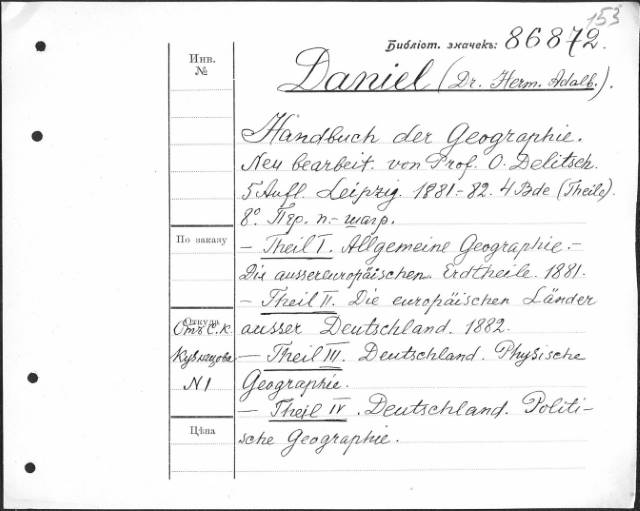 153
Библіот. значекъ: 86872.
Инв.
№
Daniel (Dr. Herm. Adalb.).
Handbuch der Geographie.
Neu bearbeit. von Prof. O. Delitsch.
5 Aufl. Leipzig. 1881.-82. 4 Bde (Theile).
8°. Пер. п.- шагр.
По заказу
— Theil I. Allgemeine Geographie.-
Die aussereuropäischen Erdtheile. 1881.
— Theil II. Die europäischen Länder
ausser Deutschland. 1882.
Откуда
Отъ С. К.
Кузнецова
N 1
— Theil III. Deutschland. Physische
Geographie.
— Theil IV. Deutschland. Politi-
sche Geographie.
Цѣна